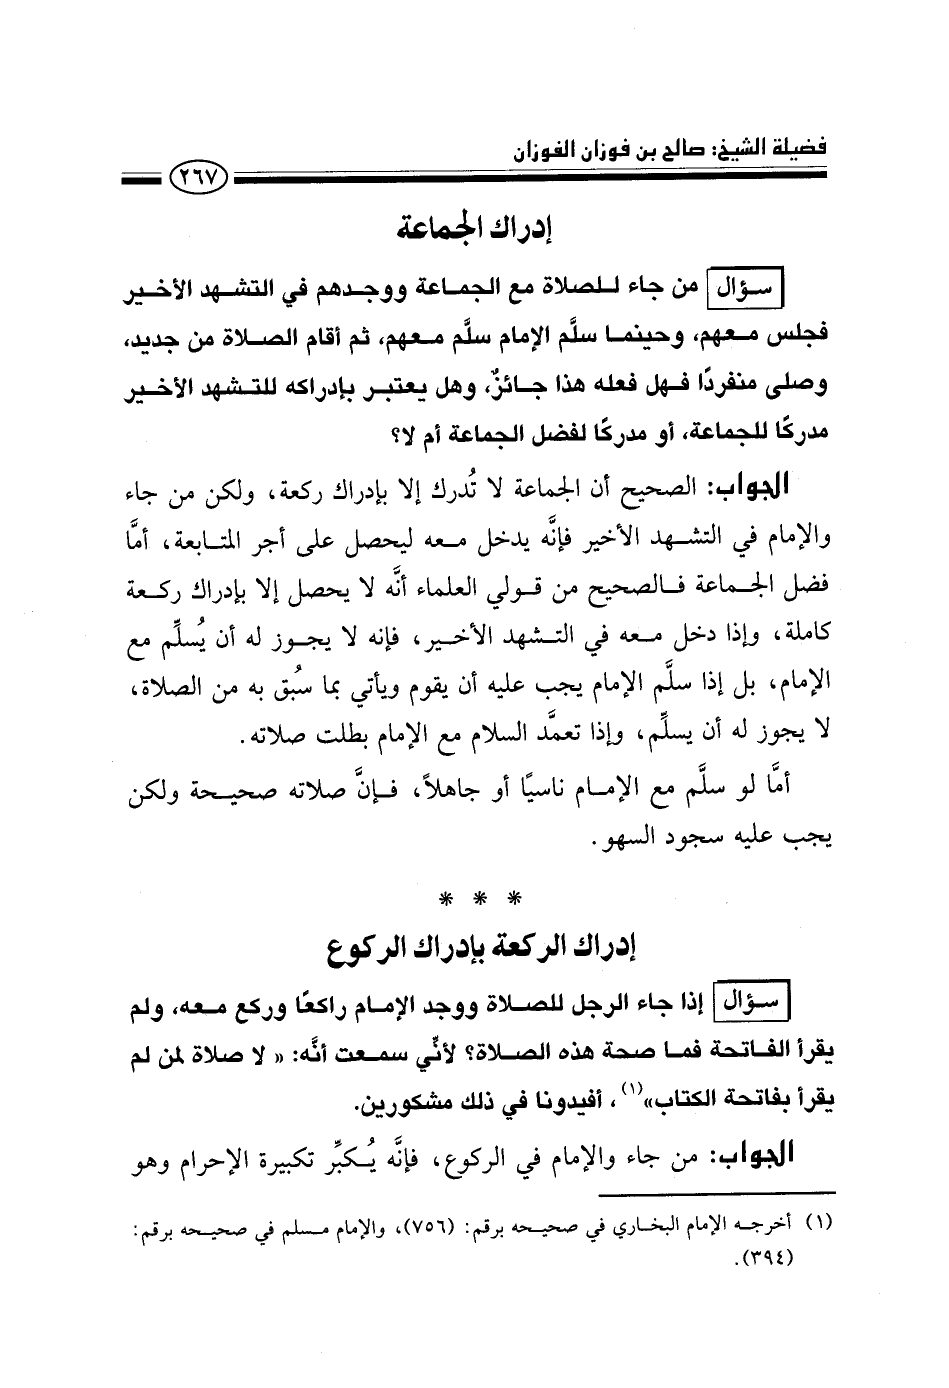 فضيلة الشيخ: صالح بن فوزان الفوزان
٢٦٧
إدراك الجماعة
سؤال من جاء للصلاة مع الجماعة ووجدهم في التشهد الأخير
فجلس معهم، وحينما سلَّم الإمام سلَّم معهم، ثم أقام الصلاة من جديد،
وصلى منفردًا فهل فعله هذا جائزٌ، وهل يعتبر بإدراكه للتشهد الأخير
مدركًا للجماعة، أو مدركًا لفضل الجماعة أم لا؟
الجواب: الصحيح أن الجماعة لا تُدرك إلا بإدراك ركعة، ولكن من جاء
والإمام في التشهد الأخير فإنَّه يدخل معه ليحصل على أجر المتابعة، أمَّا
فضل الجماعة فالصحيح من قولي العلماء أنَّه لا يحصل إلا بإدراك ركعة
كاملة، وإذا دخل معه في التشهد الأخير، فإنه لا يجوز له أن يُسلِّم مع
الإمام، بل إذا سلَّم الإمام يجب عليه أن يقوم ويأتي بما سُبق به من الصلاة،
لا يجوز له أن يسلِّم، وإذا تعمَّد السلام مع الإمام بطلت صلاته.
أمَّا لو سلَّم مع الإمام ناسيًا أو جاهلاً، فإنَّ صلاته صحيحة ولكن
يجب عليه سجود السهو.
* * *
إدراك الركعة بإدراك الركوع
سؤال إذا جاء الرجل للصلاة ووجد الإمام راكعًا وركع معه، ولم
يقرأ الفاتحة فما صحة هذه الصلاة؟ لأنِّي سمعت أنَّه: « لا صلاة لمن لم
يقرأ بفاتحة الكتاب»(١)، أفيدونا في ذلك مشكورين.
الجواب: من جاء والإمام في الركوع، فإنَّه يُكبِّر تكبيرة الإحرام وهو
(١) أخرجه الإمام البخاري في صحيحه برقم: (٧٥٦)، والإمام مسلم في صحيحه برقم:
(٣٩٤).